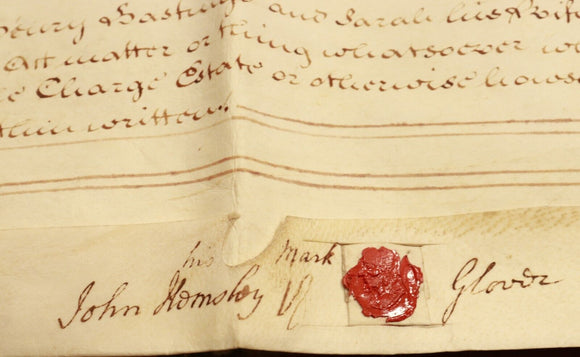 Henry Hastings and Sarah his Wife
Act matter or thing whatsoever
Charge Estate or otherwise hows
within written
his Mark
John Hemsley Glover